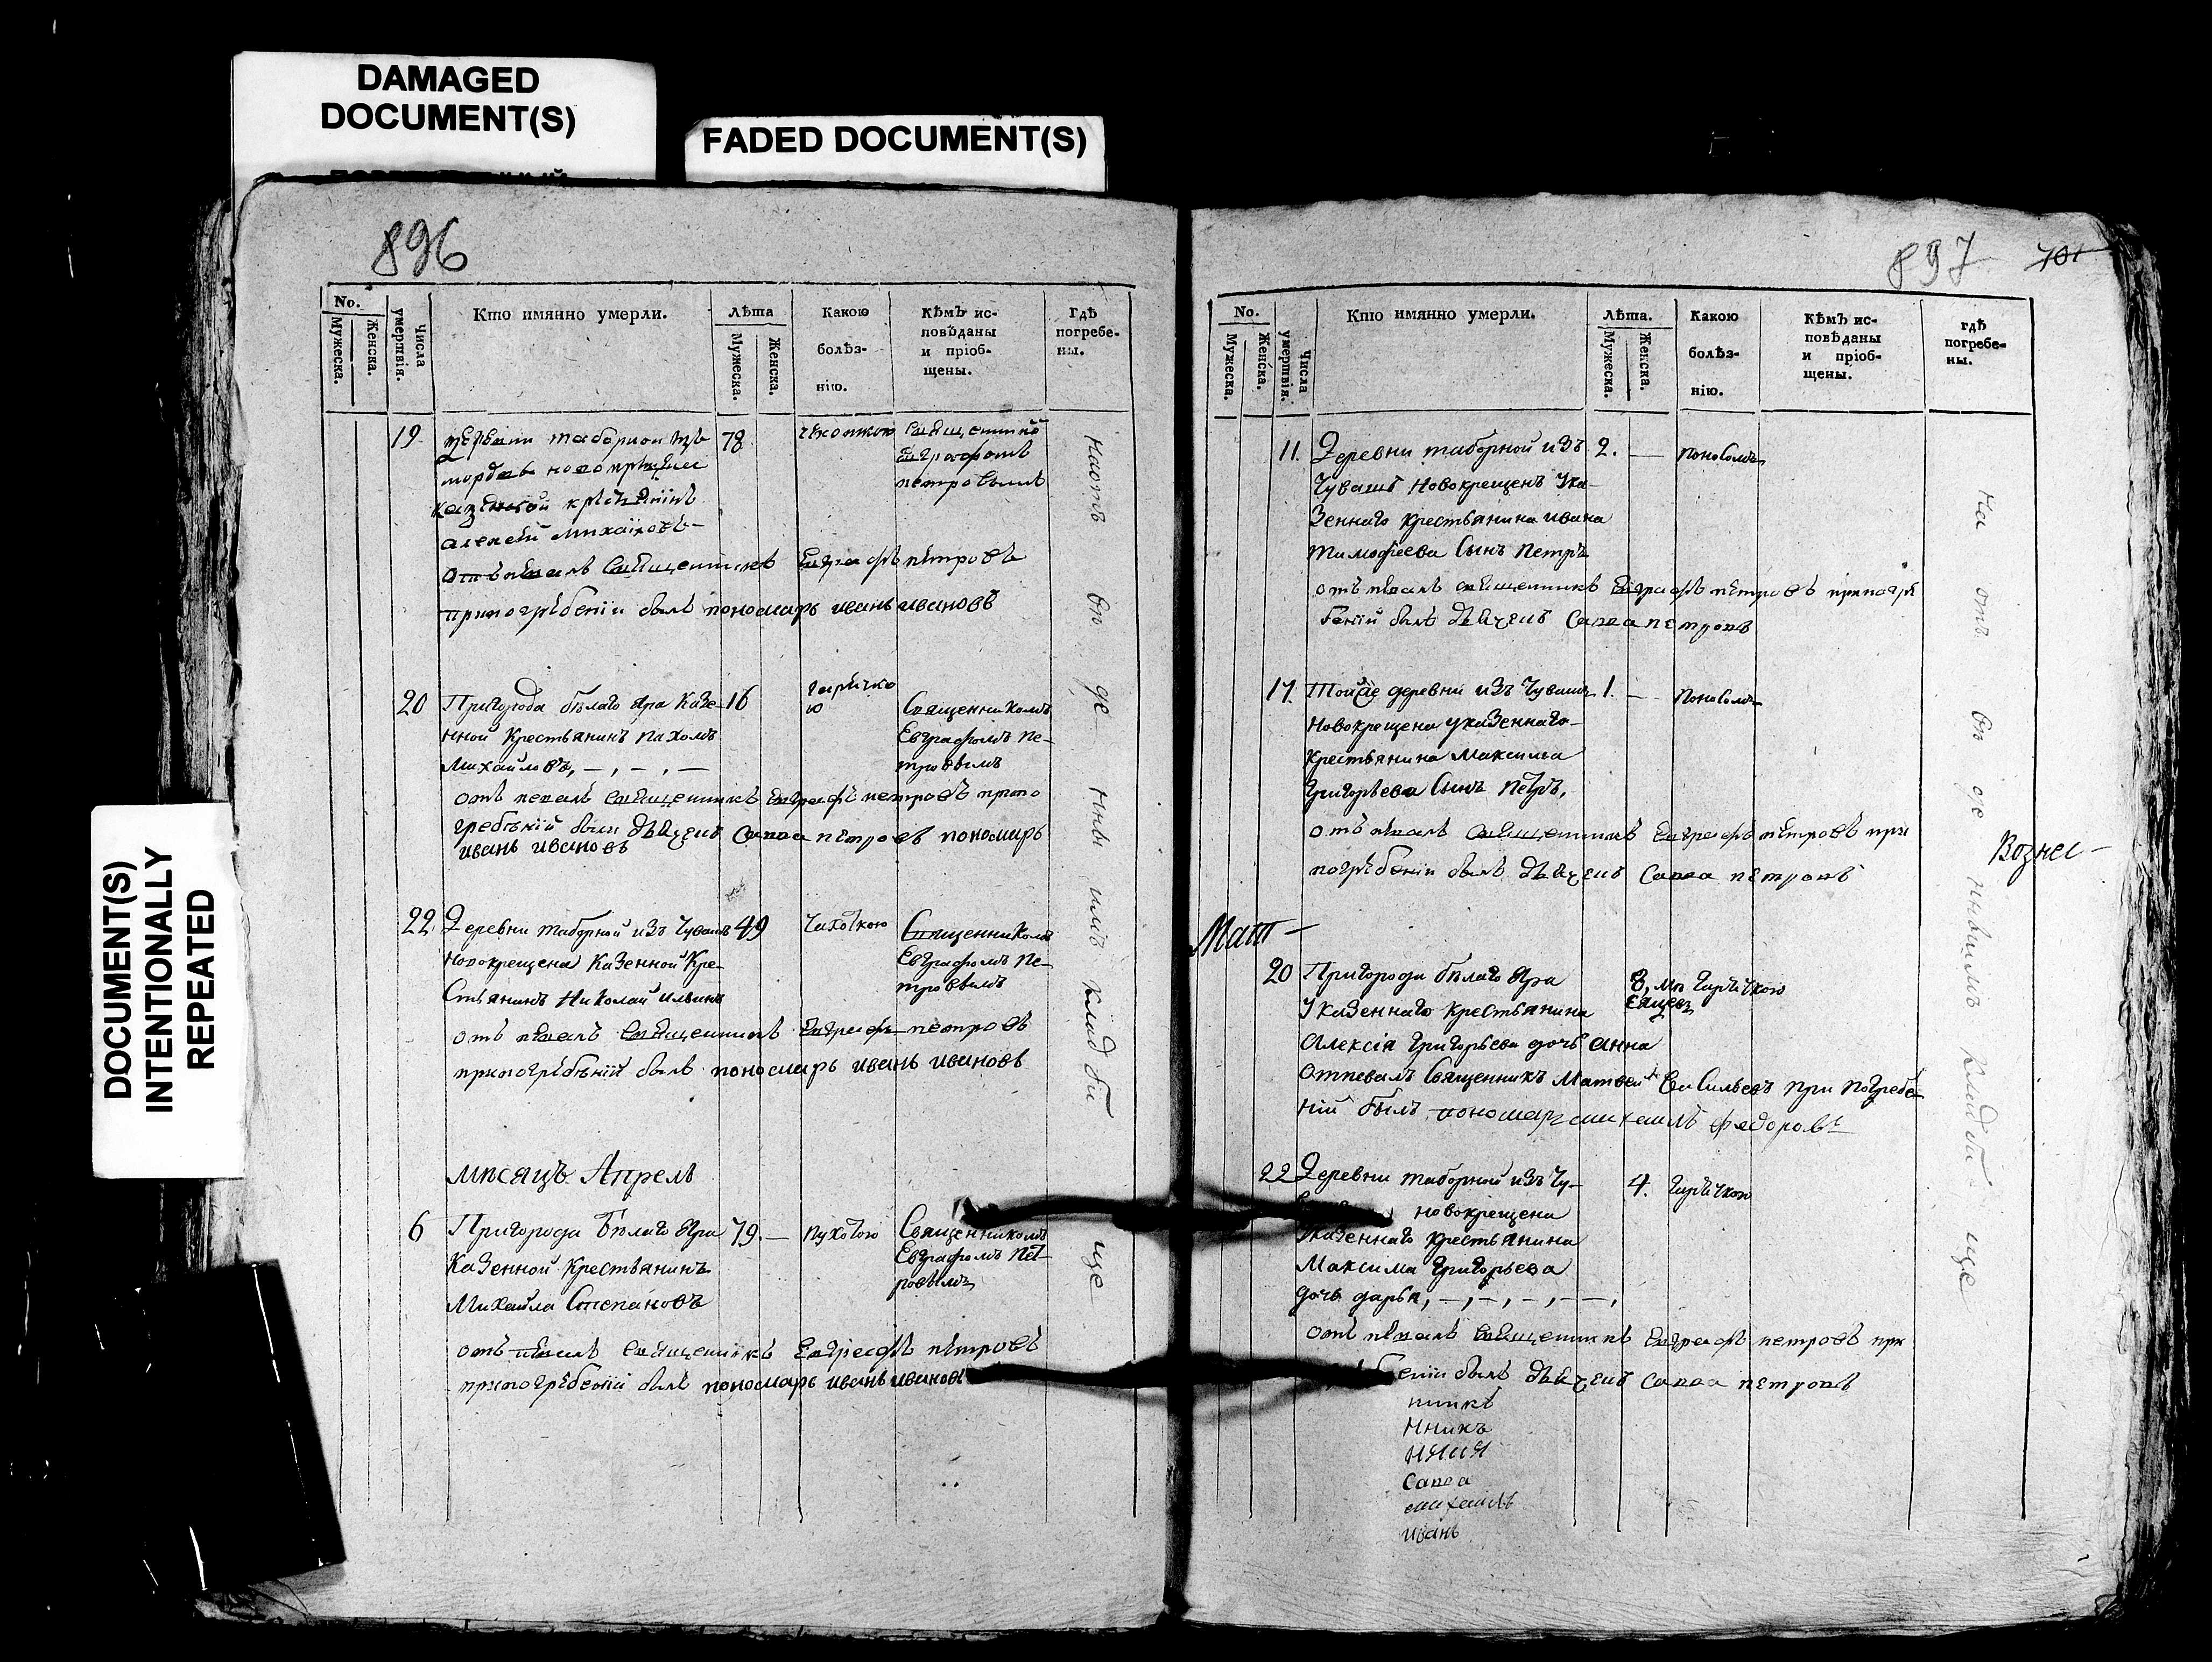 DAMAGED
DOCUMENT(S)
FADED DOCUMENT(S)
DOCUMENT(S)
INTENTIONALLY
REPEATED
896
No.
Мужеска.
Женска.
Числа умертвія.
Кто имянно умерли.
Лѣта
Мужеска.
Женска.
Какою
болѣз-
нію.
Кѣмъ ис-
повѣданы
и пріоб-
щены.
Гдѣ
погребе-
ны.
19 78
казенной
алексей михаиловъ
петровымъ
Отъ священникъ Евграфъ петровъ
при погребении былъ пономарь иванъ ивановъ
20 Пригорода бѣлаго Яра Казе- 16 горячко
ю
нной Крестьянинъ Пахомъ
Михайловъ, — , — , —
Священникомъ
Евграфомъ Пе-
тровымъ
отъ священникъ Евграфъ петровъ при по
гребѣній были дьячекъ Савва петровъ пономарь
иванъ ивановъ
22. Деревни таборной изъ Чувашъ 49 Чахоткою
Новокрещена Казенной Кре-
стьянинъ Николай ильинъ
Священникомъ
Евграфомъ Пе-
тровымъ
отъ священникъ Евграфъ петровъ
при погребѣній былъ пономарь иванъ ивановъ
мѣсяцъ Апрель
6 Пригорода Бѣлаго Яра 79. — Пухотою
Казенной Крестьянинъ
Михайла Степановъ
Священникомъ
Евграфомъ Пет-
ровымъ
отъ священникъ Евграфъ петровъ
при погребеній былъ пономарь иванъ ивановъ
клад би ще
897
701
No.
Мужеска.
Женска.
Числа умертвія.
Кто имянно умерли.
Лѣта.
Мужеска.
Женска.
Какою
болѣз-
нію.
Кѣмъ ис-
повѣданы
и пріоб-
щены.
гдѣ
погребе-
ны.
11. Деревни таборной изъ 2. — Поносомъ
Чувашъ Новокрещенъ Ука-
зеннаго крестьянина ивана
тимофеева Сынъ Петръ
отъ священникъ Евграфъ петровъ при погре
бении былъ дьячекъ Савва петровъ
17. Тойже деревни изъ Чувашъ 1. — Поносомъ
Новокрещена указеннаго
крестьянина Максима
Григорьева Сынъ Петръ,
отъ священникъ Евграфъ петровъ при
погребении былъ дьячекъ Савва петровъ
Вознес-
20 Пригорода бѣлаго Яра 8, мѣ Горячкою
сяцев
Указеннаго крестьянина
Алексія Григорьева дочь анна
Отпевалъ Священникъ Матвей Васильевъ При погребе-
ній былъ пономарь михаилъ федоровъ
22 Деревни таборной изъ Чу- 4. Горячкою
новокрещена
Указеннаго крестьянина
Максима Григорьева
дочь дарья, — , — , — , — ,
отъ священникъ Евграфъ петровъ при
бении былъ дьячекъ Савва петровъ
нникъ
Савва
михаилъ
иванъ